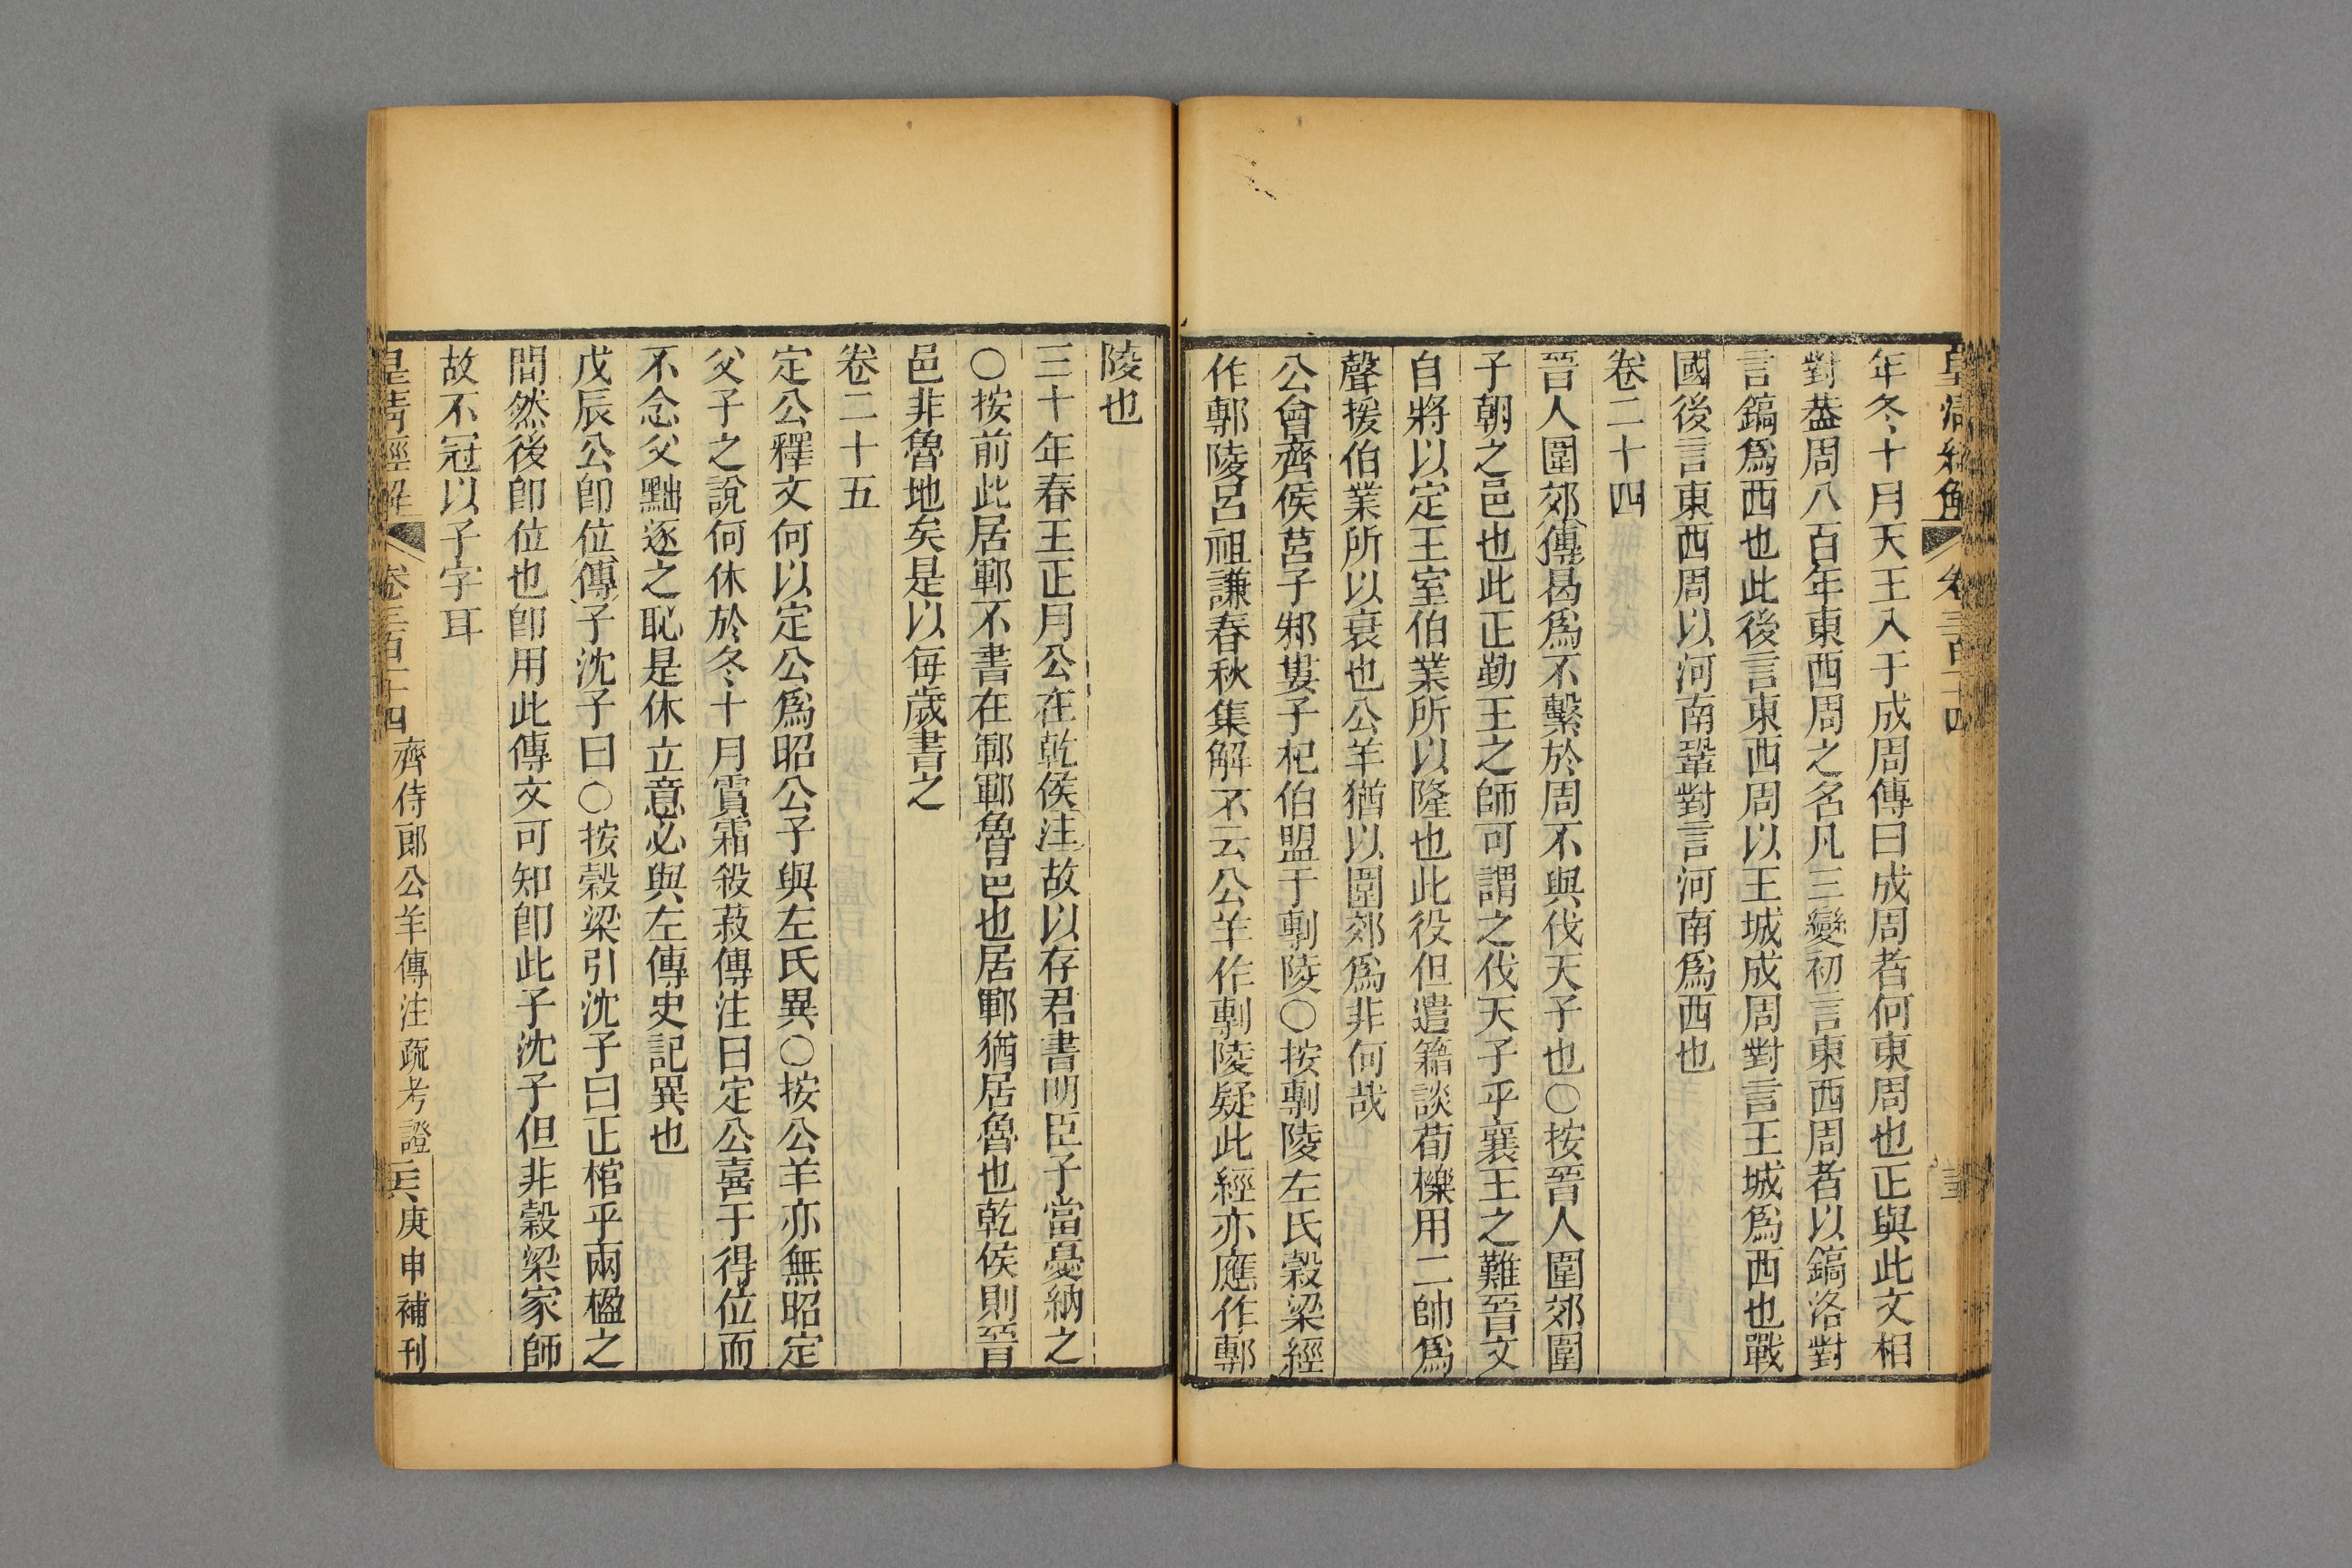 皇清經解 卷三百十四
年冬十月天王入于成周傳曰成周者何東周也正與此文相
對葢周八百年東西周之名凡三變初言東西周者以鎬洛對
言鎬爲西也此後言東西周以王城成周對言王城爲西也戰
國後言東西周以河南鞏對言河南爲西也
卷二十四
晉人圍郊傳曷爲不繫於周不與伐天子也○按晉人圍郊圍
子朝之邑也此正勤王之師可謂之伐天子乎襄王之難晉文
自將以定王室伯業所以隆也此役但遣籍談荀櫟用二帥爲
聲援伯業所以衰也公羊猶以圍郊爲非何哉
公會齊侯莒子邾婁子杞伯盟于剸陵○按剸陵左氏穀梁經
作鄟陵呂祖謙春秋集解不云公羊作剸陵疑此經亦應作鄟
陵也
三十年春王正月公在乾侯注故以存君書明臣子當憂納之
○按前此居鄆不書在鄆鄆魯邑也居鄆猶居魯也乾侯則晉
邑非魯地矣是以每歲書之
卷二十五
定公釋文何以定公爲昭公子與左氏異○按公羊亦無昭定
父子之說何休於冬十月霣霜殺菽傳注曰定公喜于得位而
不念父黜逐之恥是休立意必與左傳史記異也
戊辰公卽位傳子沈子曰○按穀梁引沈子曰正棺乎兩楹之
間然後卽位也卽用此傳文可知卽此子沈子但非穀梁家師
故不冠以子字耳
皇清經解 卷三百十四 齊侍郎公羊傳注疏考證 庚申補刊